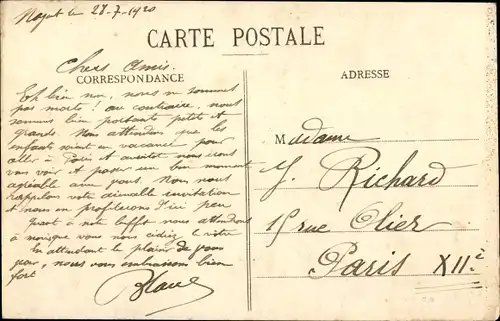 le 28-7-1920
CARTE POSTALE
Chers Amis.
CORRESPONDANCE
ADRESSE
Eh bien non, nous ne sommes
pas morts! au contraire, nous
sommes bien portants petits et
grands. Nous attendons que les
enfants soient en vacances pour
aller à Paris et aussitôt nous irons
vous voir et passer un bon moment
agréable avec vous. Nous nous
rappelons votre aimable invitation
et nous en profiterons d'ici peu
quant à notre nous attendons
à nous
en attendant le plaisir de vous
, nous vous embrassons bien
fort
Madame
J. Richard
15 rue Olier
Paris XIIè